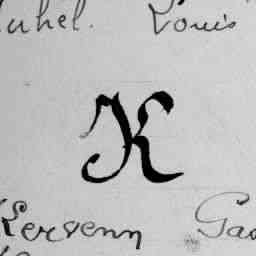 uhel. Louis
K
Kervenn Gas